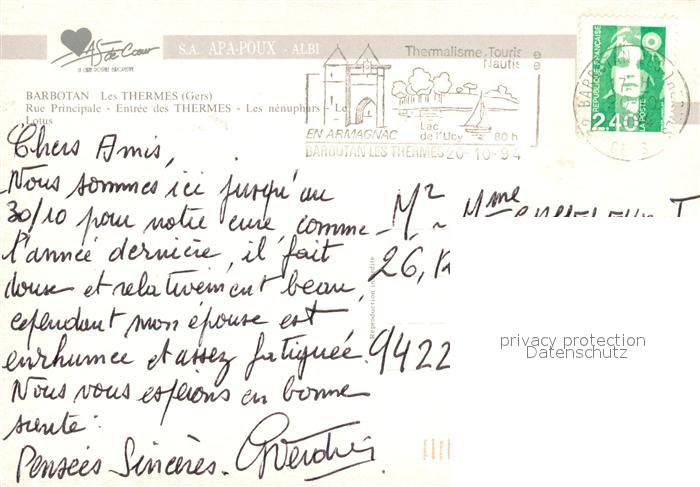 As de Cœur
S.A. APA-POUX - ALBI
BARBOTAN Les THERMES (Gers)
Rue Principale - Entrée des THERMES - Les nénuphars - Le
Lotus
Thermalisme-Touris
Nautis
EN ARMAGNAC
Lac
de l'Uby
80 h
BARBOTAN LES THERMES 20-10-94
REPUBLIQUE FRANÇAISE
2,40
Chers Amis,
Nous sommes ici jusqu'au
30/10 pour notre cure, comme
l'année dernière, il fait
douse et relativement beau,
cependant mon épouse est
enrhumée et assez fatiguée.
Nous vous espérons en bonne
santé.
Pensées Sincères.
Mr Mme
26,
9422
Reproduction interdite
privacy protection
Datenschutz